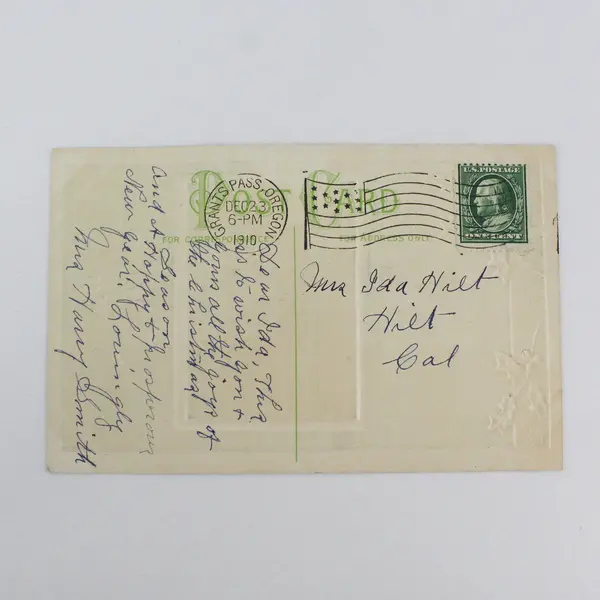 POST CARD
FOR CORRESPONDENCE
FOR ADDRESS ONLY
GRANTS PASS, OREGON
DEC 23
6-PM
1910
U.S. POSTAGE
ONE CENT
Mrs Ida Hilt
Hilt
Cal
Dear Ida, This
is to wish you &
yours all the joys of
the Christmas
Season
and A Happy & Prosperous
New Year. Lovingly
Mrs Harry Smith